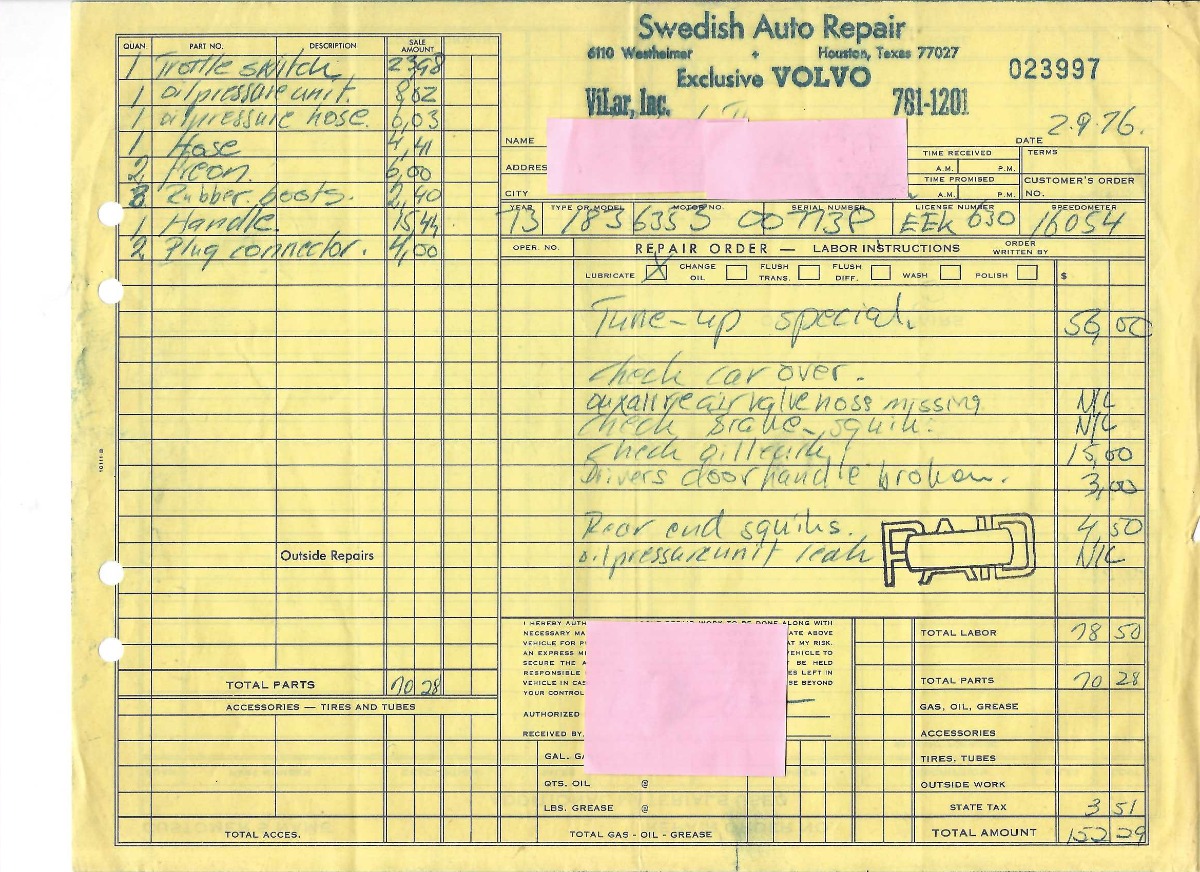 Swedish Auto Repair
6110 Westheimer + Houston, Texas 77027
Exclusive VOLVO
023997
ViLar, Inc. 781-1201
NAME
DATE 2-9-76.
ADDRES
CITY
TIME RECEIVED
A.M. P.M.
TIME PROMISED
A.M. P.M.
TERMS
CUSTOMER'S ORDER
NO.
YEAR TYPE OR MODEL MOTOR NO. SERIAL NUMBER LICENSE NUMBER SPEEDOMETER
73 1836353 EEK 630 16054
QUAN. PART NO. DESCRIPTION SALE AMOUNT
1 Trottle switch 23,98
1 oil pressure unit. 8,02
1 oil pressure hose. 6,03
1 Hose 4,41
2 Freon. 6,00
3 Rubber boots. 2,40
1 Handle. 15,44
2 Plug connector. 4,00
Outside Repairs
TOTAL PARTS 70 28
ACCESSORIES — TIRES AND TUBES
TOTAL ACCES.
OPER. NO. REPAIR ORDER — LABOR INSTRUCTIONS ORDER WRITTEN BY
LUBRICATE X CHANGE OIL FLUSH TRANS. FLUSH DIFF. WASH POLISH $
Tune-up special. 56,00
Check car over.
air valve hoss missing N/C
Check brake squik. N/C
Check oil leak 15,00
Drivers door handle broken. 3,00
Rear end squiks. 4 50
oil pressure unit leak N/C
PAID
I HEREBY AUTH WORK TO BE DONE ALONG WITH
NECESSARY MA ATE ABOVE
VEHICLE FOR P AT MY RISK.
AN EXPRESS ME VEHICLE TO
SECURE THE A T BE HELD
RESPONSIBLE ES LEFT IN
VEHICLE IN CAS SE BEYOND
YOUR CONTROL
AUTHORIZED
RECEIVED BY
GAL. GA
QTS. OIL @
LBS. GREASE @
TOTAL GAS - OIL - GREASE
TOTAL LABOR 78 50
TOTAL PARTS 70 28
GAS, OIL, GREASE
ACCESSORIES
TIRES, TUBES
OUTSIDE WORK
STATE TAX 3 51
TOTAL AMOUNT 152 29